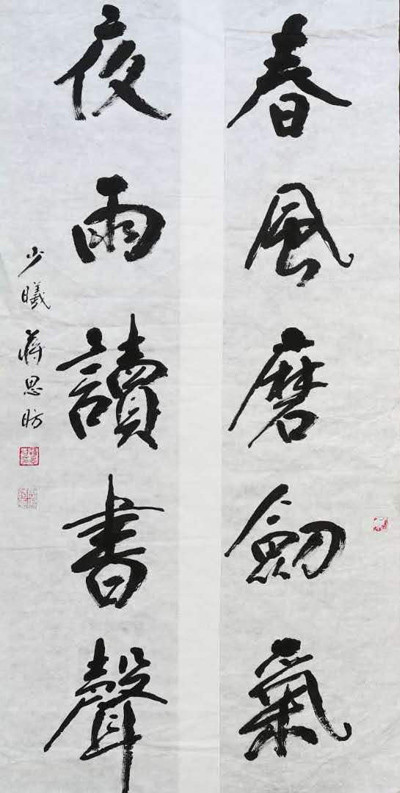 春風磨劍氣
夜雨讀書聲
少曦 蔣思昉